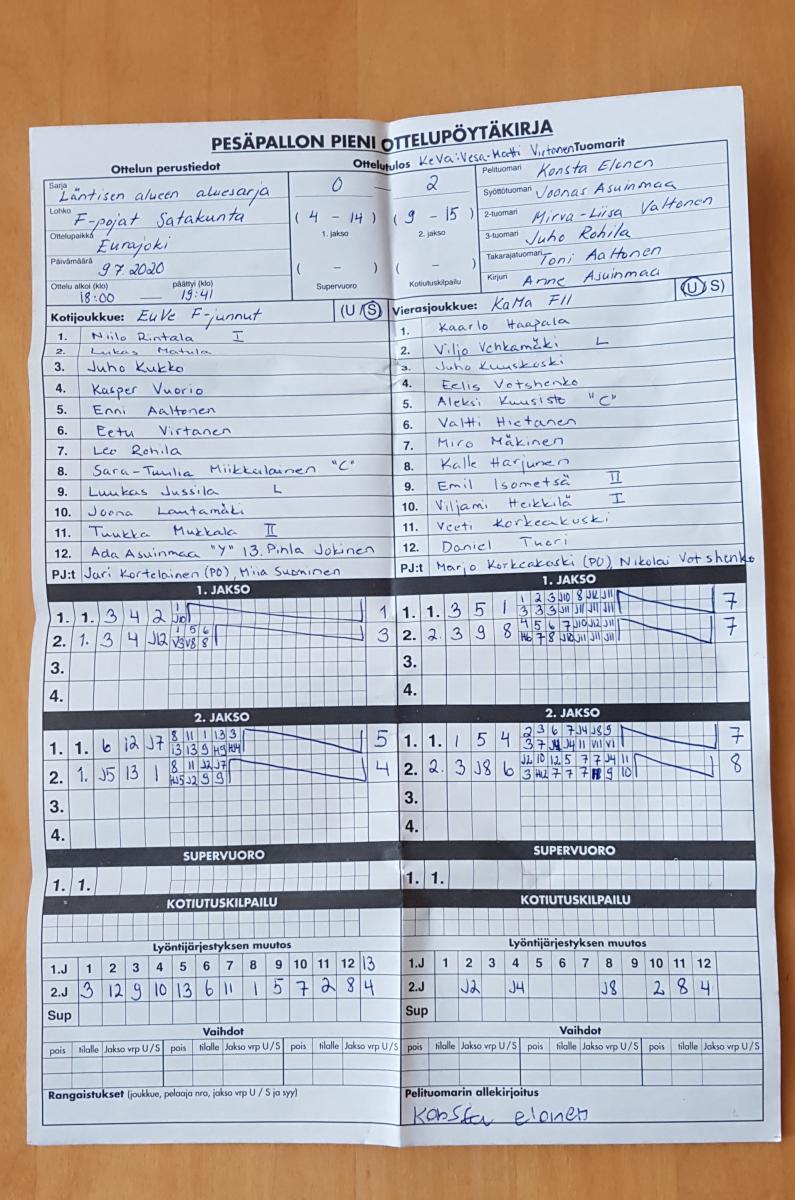 PESÄPALLON PIENI OTTELUPÖYTÄKIRJA
Ottelun perustiedot
Ottelutulos KeVa: Vesa-Matti Virtonen Tuomarit
Sarja Läntisen alueen aluesarja
Lohko F-pojat Satakunta
Ottelupaikka Eurajoki
Päivämäärä 9.7.2020
Ottelu alkoi (klo) päättyi (klo)
18:00 — 19:41
0 — 2
( 4 - 14 ) ( 9 - 15 )
1. jakso 2. jakso
( - ) ( - )
Supervuoro Kotiutuskilpailu
Pelituomari Konsta Elonen
Syöttötuomari Joonas Asuinmaa
2-tuomari Mirva-Liisa Valtonen
3-tuomari Juho Rohila
Takarajatuomari Toni Aaltonen
Kirjuri Anne Asuinmaa
Kotijoukkue: EuVe F-junnut (U/S)
1. Niilo Rintala I
2. Lukas Matula
3. Juho Kukko
4. Kasper Vuorio
5. Enni Aaltonen
6. Eetu Virtanen
7. Leo Rohila
8. Sara-Tuulia Miikkulainen "C"
9. Luukas Jussila L
10. Joona Lautamäki
11. Tuukka Mukkala II
12. Ada Asuinmaa "Y" 13. Pihla Jokinen
PJ:t Jari Kortelainen (PO), Miia Suominen
Vierasjoukkue: KaMa FII (U/S)
1. Kaarlo Haapala
2. Viljo Vehkamäki L
3. Juho Kuuskoski
4. Eelis Votshenko
5. Aleksi Kuusisto "C"
6. Valtti Hietanen
7. Miro Mäkinen
8. Kalle Harjunen
9. Emil Isometsä II
10. Viljami Heikkilä I
11. Veeti Korkeakoski
12. Daniel Tuori
PJ:t Marjo Korkeakoski (PO), Nikolai Votshenko
1. JAKSO
1. 1. 3 4 2 1
2. 1. 3 4 J12 3
3.
4.
1. JAKSO
1. 1. 3 5 1 7
2. 2. 3 9 8 7
3.
4.
2. JAKSO
1. 1. 6 12 J7 5
2. 1. J5 13 1 4
3.
4.
2. JAKSO
1. 1. 1 5 4 7
2. 2. 3 J8 6 8
3.
4.
SUPERVUORO
1. 1.
SUPERVUORO
1. 1.
KOTIUTUSKILPAILU
KOTIUTUSKILPAILU
Lyöntijärjestyksen muutos
1.J 1 2 3 4 5 6 7 8 9 10 11 12 13
2.J 3 12 9 10 13 6 11 1 5 7 2 8 4
Sup
Lyöntijärjestyksen muutos
1.J 1 2 3 4 5 6 7 8 9 10 11 12
2.J J2 J4 J8 2 8 4
Sup
Vaihdot
pois tilalle Jakso vrp U/S pois tilalle Jakso vrp U/S pois tilalle Jakso vrp U/S
Vaihdot
pois tilalle Jakso vrp U/S pois tilalle Jakso vrp U/S pois tilalle Jakso vrp U/S
Rangaistukset (joukkue, pelaaja nro, jakso vrp U / S ja syy)
Pelituomarin allekirjoitus
Konsta elonen